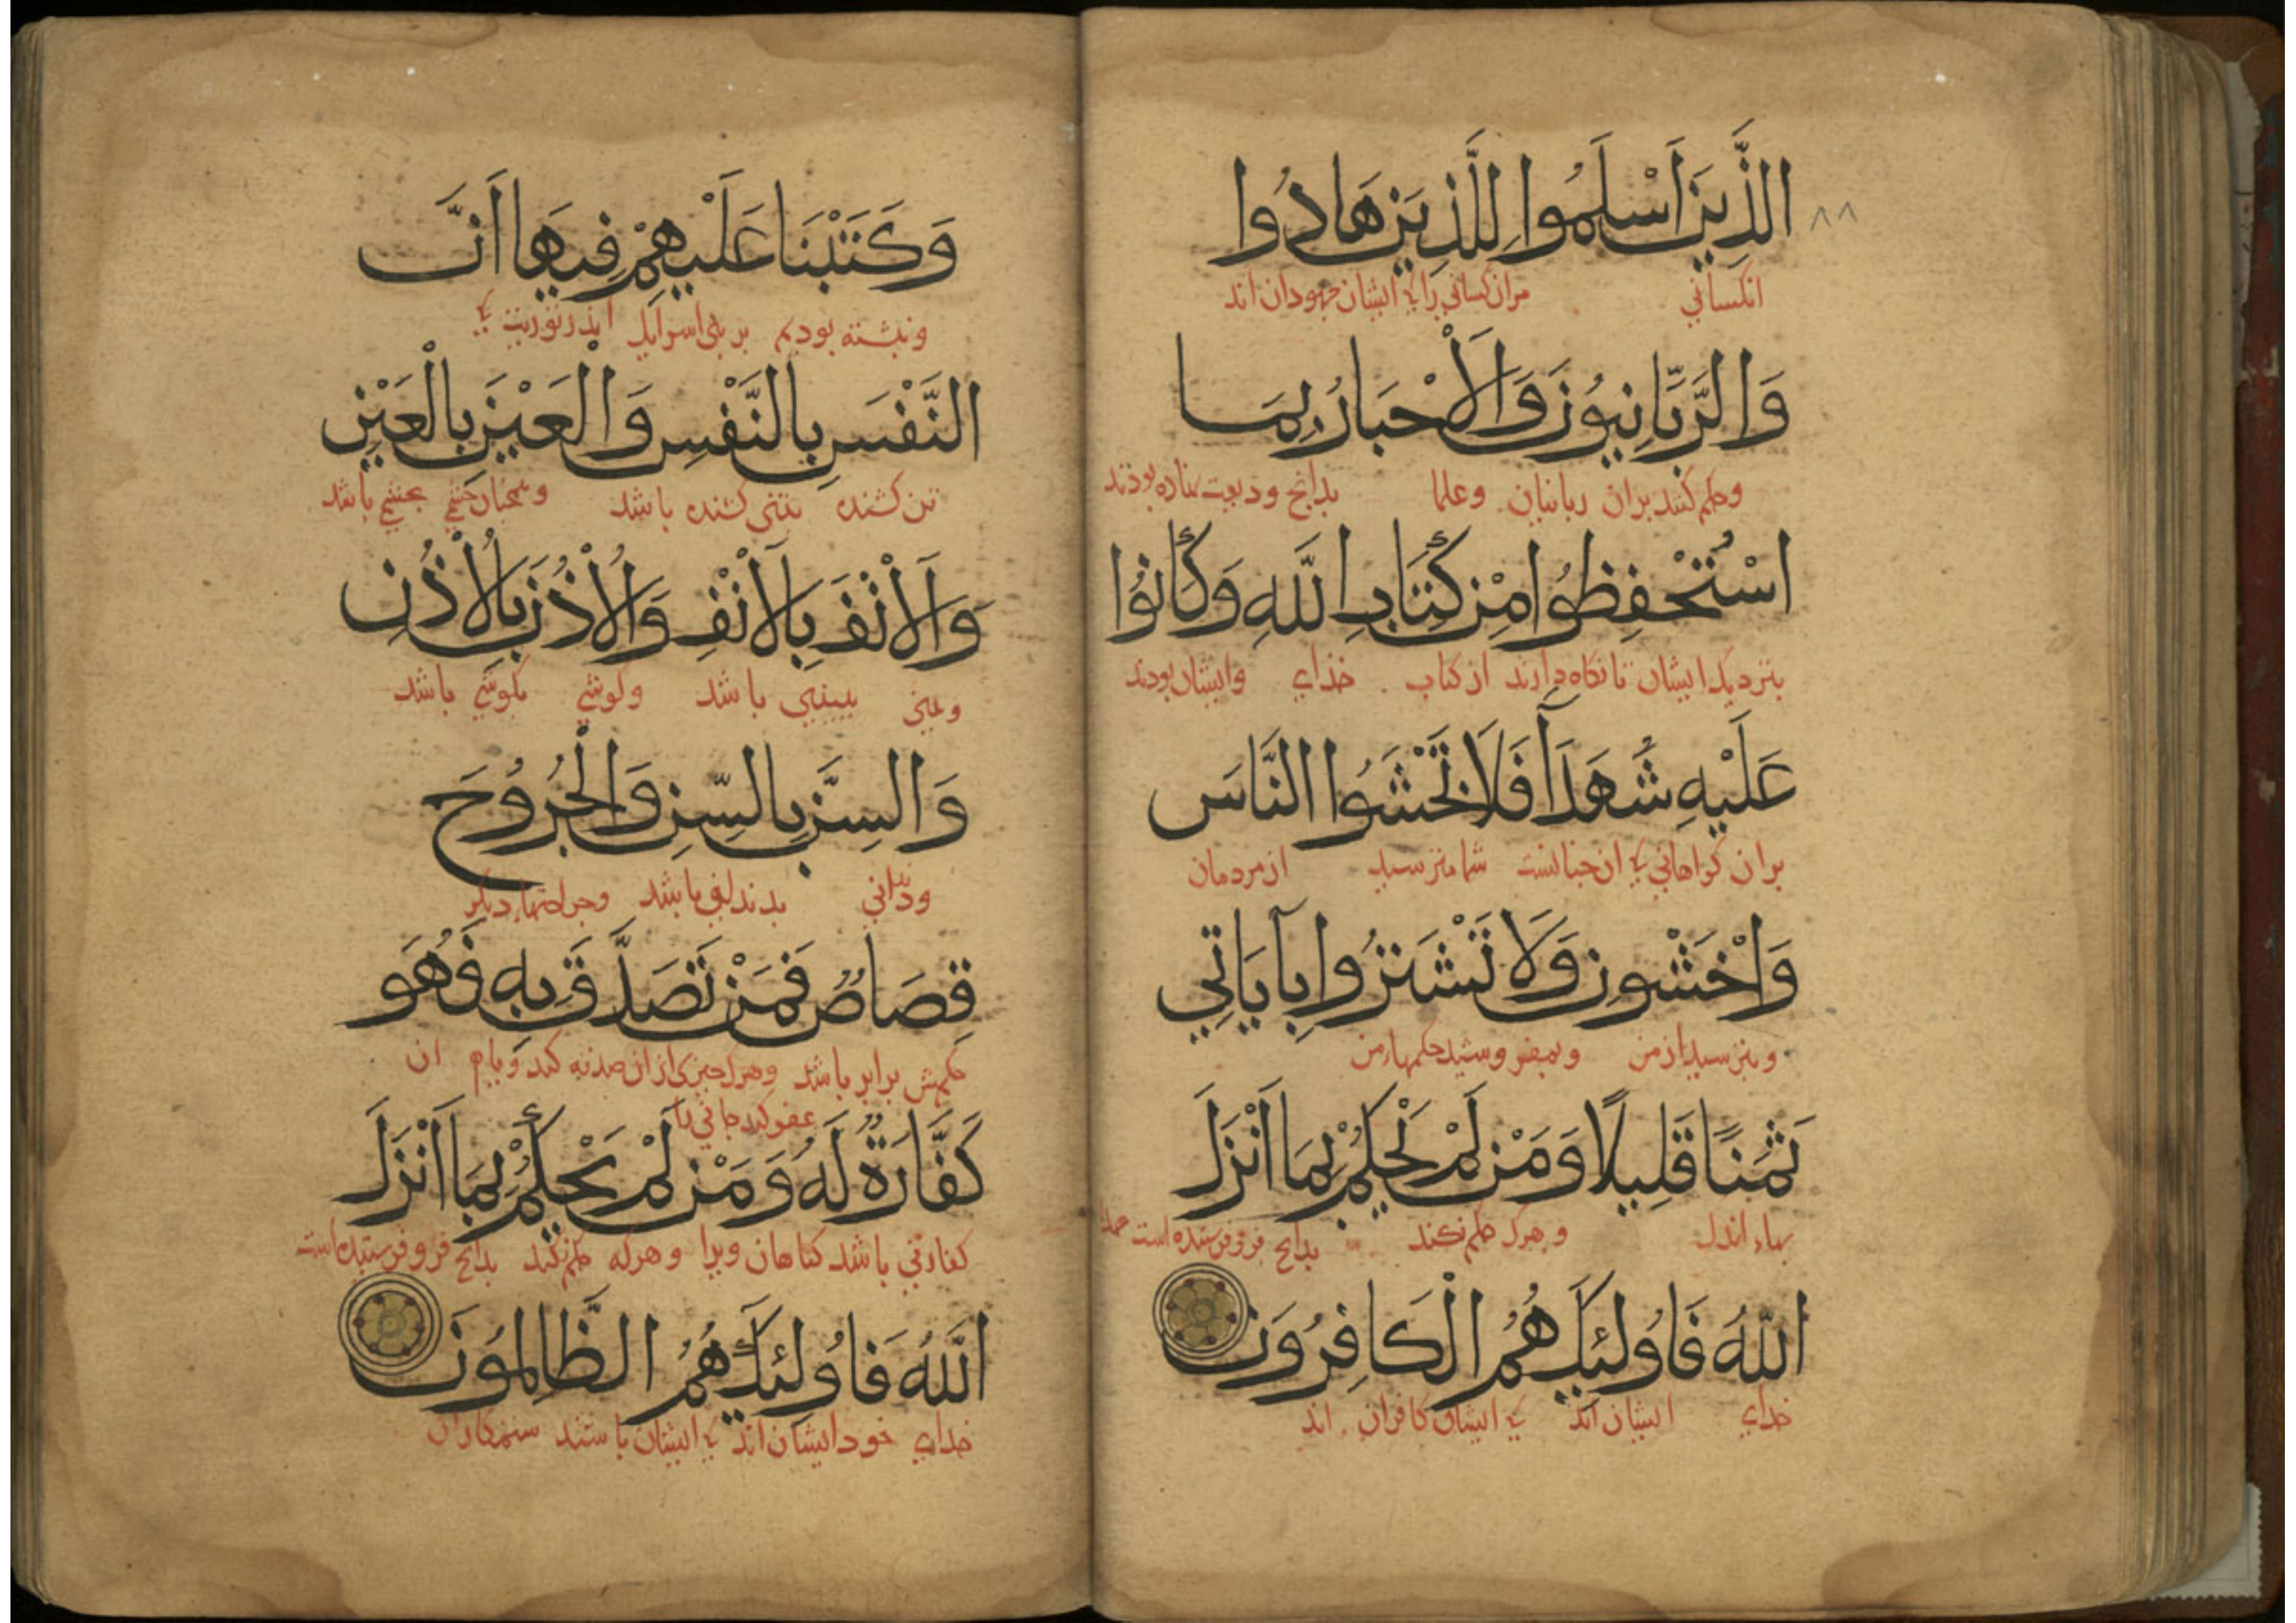 الَّذِينَ أَسْلَمُوا لِلَّذِينَ هَادُوا
٨٨
انکسانی مران کسانی را که ایشان جهودان اند
وَالرَّبَّانِيُّونَ وَالْأَحْبَارُ بِمَا
وحکم کنند بران ربانیان وعلما بدانچ ودیعت نهاده بودند
اسْتُحْفِظُوا مِنْ كِتَابِ اللَّهِ وَكَانُوا
بنزدیک ایشان تا نگاه دارند از کتاب خذای وایشان بودند
عَلَيْهِ شُهَدَآءَ فَلَا تَخْشَوُا النَّاسَ
بران گواهانی که ان شما مترسید از مردمان
وَاخْشَوْنِ وَلَا تَشْتَرُوا بِآيَاتِي
وبترسید از من وبمفروشید حکمهاء من
ثَمَنًا قَلِيلًا وَمَنْ لَمْ يَحْكُمْ بِمَا أَنْزَلَ
بهاء اندک وهرک حکم نکند بدانچ فروفرستده است
اللَّهُ فَأُولَئِكَ هُمُ الْكَافِرُونَ
خدای ایشان اند که ایشان کافران اند
وَكَتَبْنَا عَلَيْهِمْ فِيهَا أَنَّ
ونبشته بودیم بر بنی اسرایل اندر توریت که
النَّفْسَ بِالنَّفْسِ وَالْعَيْنَ بِالْعَيْنِ
تن کشنده بتنی کشنده باشد وهمچنان چشمی بچشمی باشد
وَالْأَنْفَ بِالْأَنْفِ وَالْأُذُنَ بِالْأُذُنِ
وبینی ببینیی باشد وگوشی بگوشی باشد
وَالسِّنَّ بِالسِّنِّ وَالْجُرُوحَ
ودندانی بدندانی باشد وجراحتهاء دیگر
قِصَاصٌ فَمَنْ تَصَدَّقَ بِهِ فَهُوَ
حکمش برابر باشد وهرک چیزی از ان صدقه کند ان
عفو کند جانی را
كَفَّارَةٌ لَهُ وَمَنْ لَمْ يَحْكُمْ بِمَا أَنْزَلَ
کفارتی باشد کناهان ویرا وهرکه حکم نکند بدانچ فروفرستیده است
اللَّهُ فَأُولَئِكَ هُمُ الظَّالِمُونَ
خدای خود ایشان اند که ایشان باشند ستمکاران